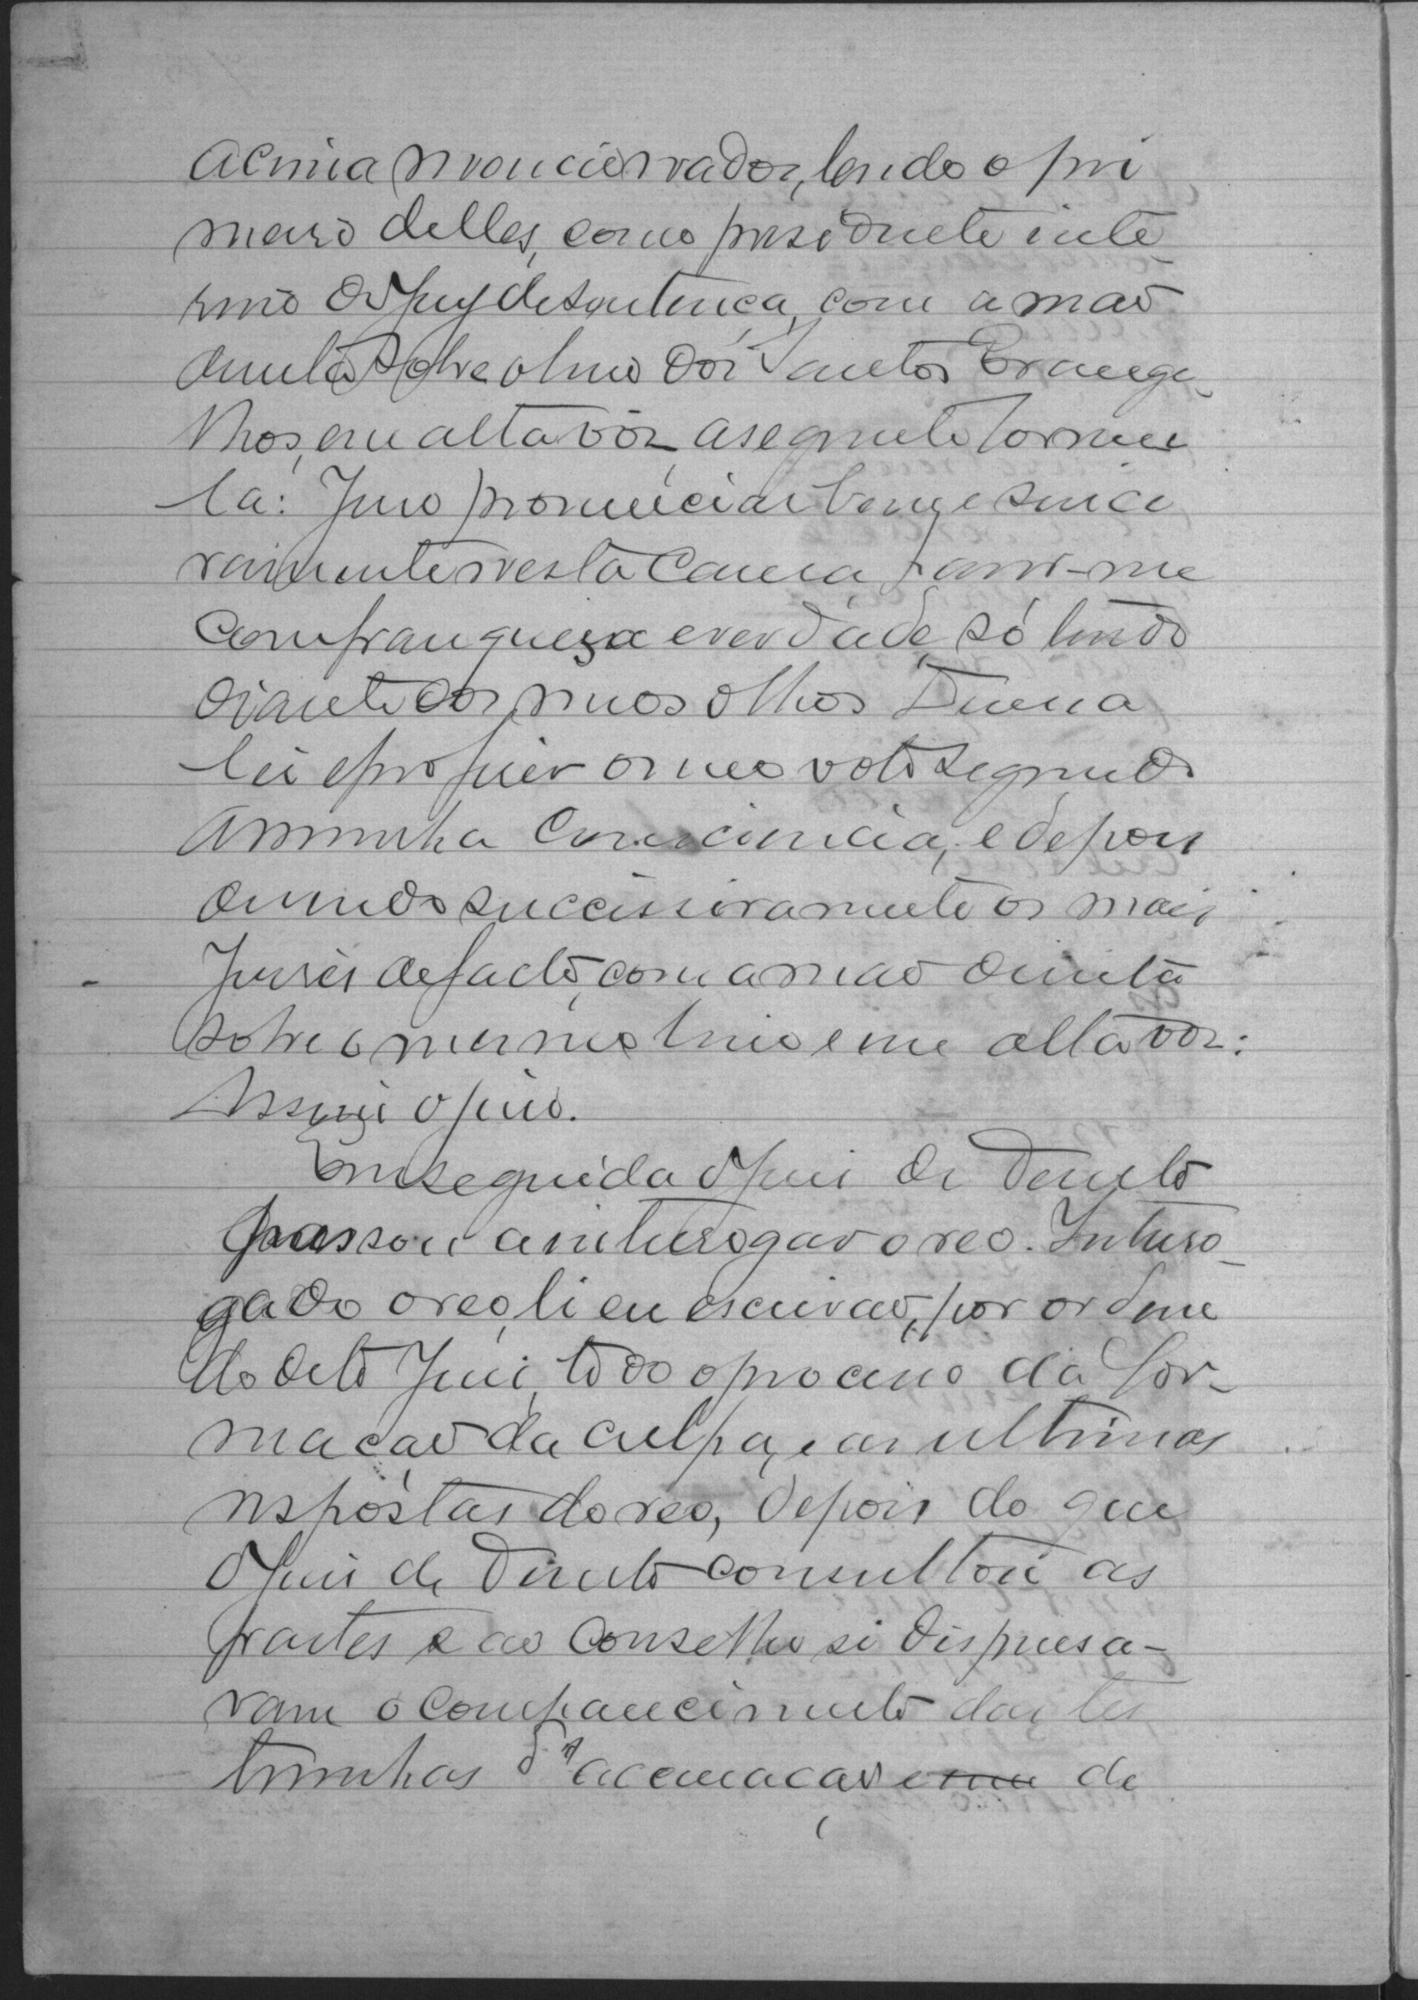 acima mencionados, lendo o pri
meiro delles, como presidente inte
rino do jury de sentença, com a mão
direita sobre o livro dos Santos Evange
lhos, em alta voz, a seguinte formu
la: Juro pronunciar bem e since
ramente nesta causa, haver-me
com franqueza e verdade, só tendo
diante dos meus olhos Deus e a
lei e proferir o meo voto segundo
a minha consciencia, e depois
dizendo successivamente os mais
Juises de facto, com a mão direita
sobre o mesmo livro e em alta voz:
Assim o juro.
Em seguida o juiz de Direito
passou a interrogar o reo. Interro
gado o reo, li eu escrivão, por ordem
do dito Juiz, todo o processo da for-
mação da culpa, e as ultimas
respóstas do reo, depois do que
o Juiz de Direito consultou as
partes e ao conselho si dispensa-
vam o comparecimento das tes
timunhas d' accusação e de